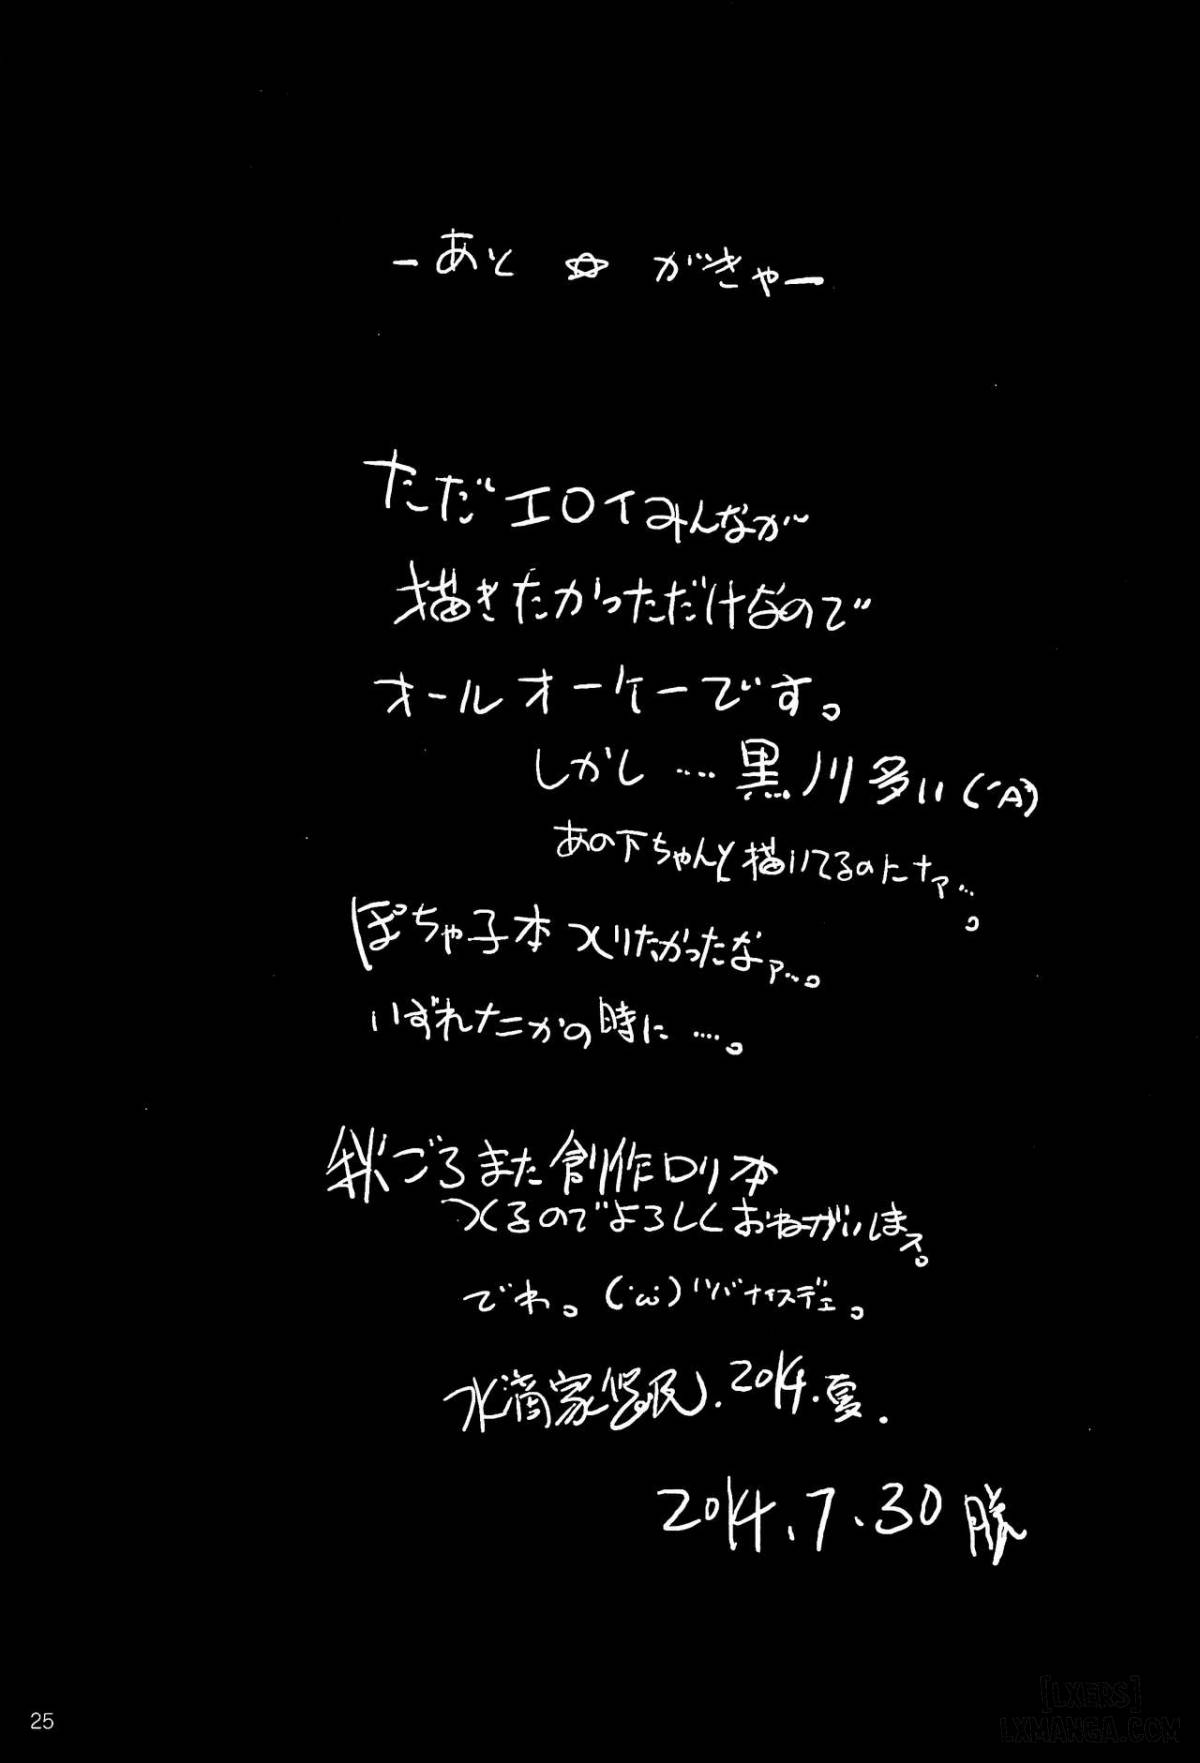 ーあと☆がきゃー
ただエロイみんなが
描きたかっただけなので
オールオーケーです。
しかし‥‥黒川多い(´A`)
あの下ちゃんと描いてるのにナァ…。
ぽちゃ子本つくりたかったなァ…。
いずれナニかの時に‥‥。
秋ごろまた創作ロリ本
つくるのでよろしくおねがいしまス。
でわ。(´ω`)ハバナイスデェ。
2014.夏.
2014.7.30
25
[LXERS]
LXMANGA.COM